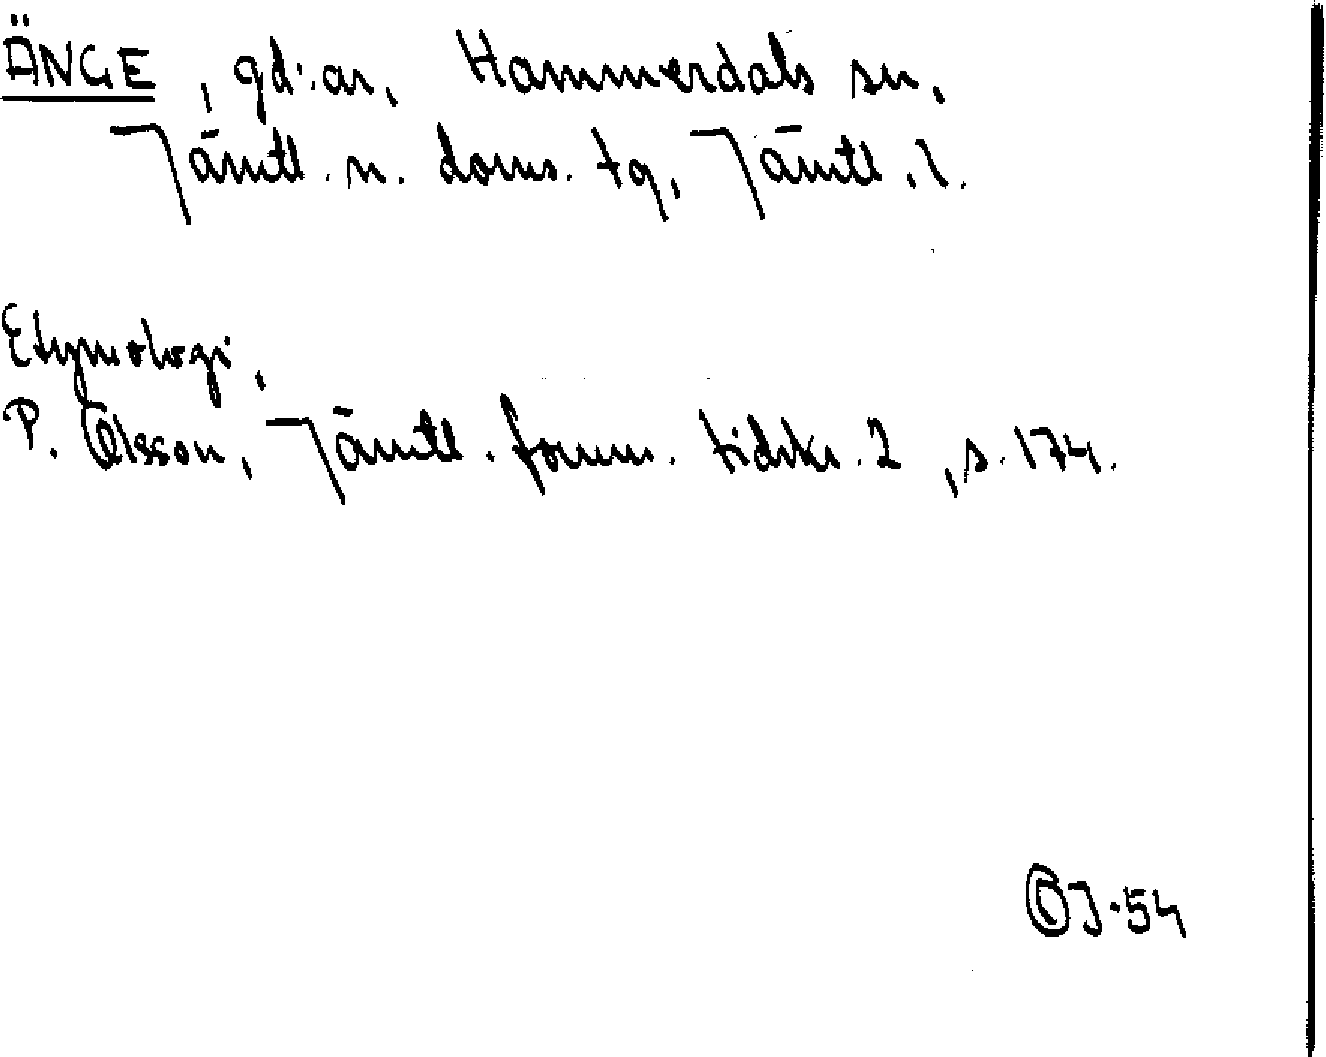 ÄNGE, gd:ar, Hammerdals sn,
Jämtl. n. doms. tg, Jämtl. l.
Etymologi.
P. Olsson, Jämtl. fornm. tidskr. 2, s. 174.
OJ-54